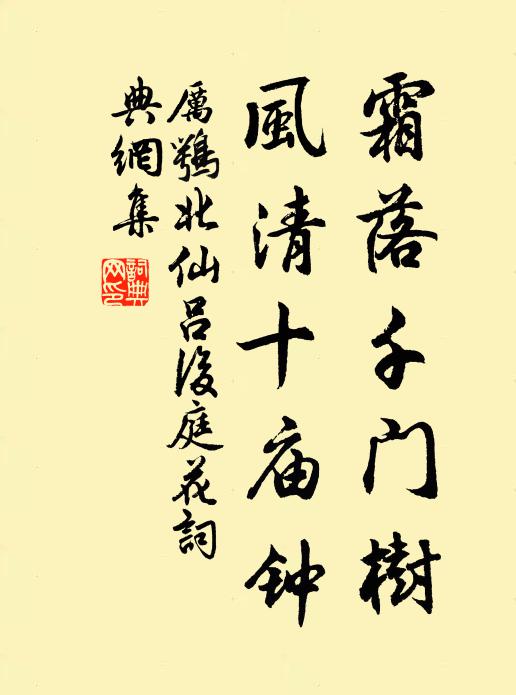 霜落千门樹
風清十庙钟
厲鶚北仙吕後庭花詞
典網集
詞典网印